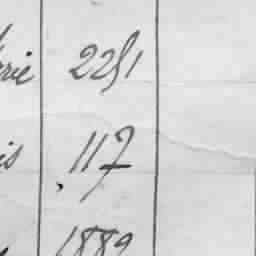 rie 2251
is 117
1889